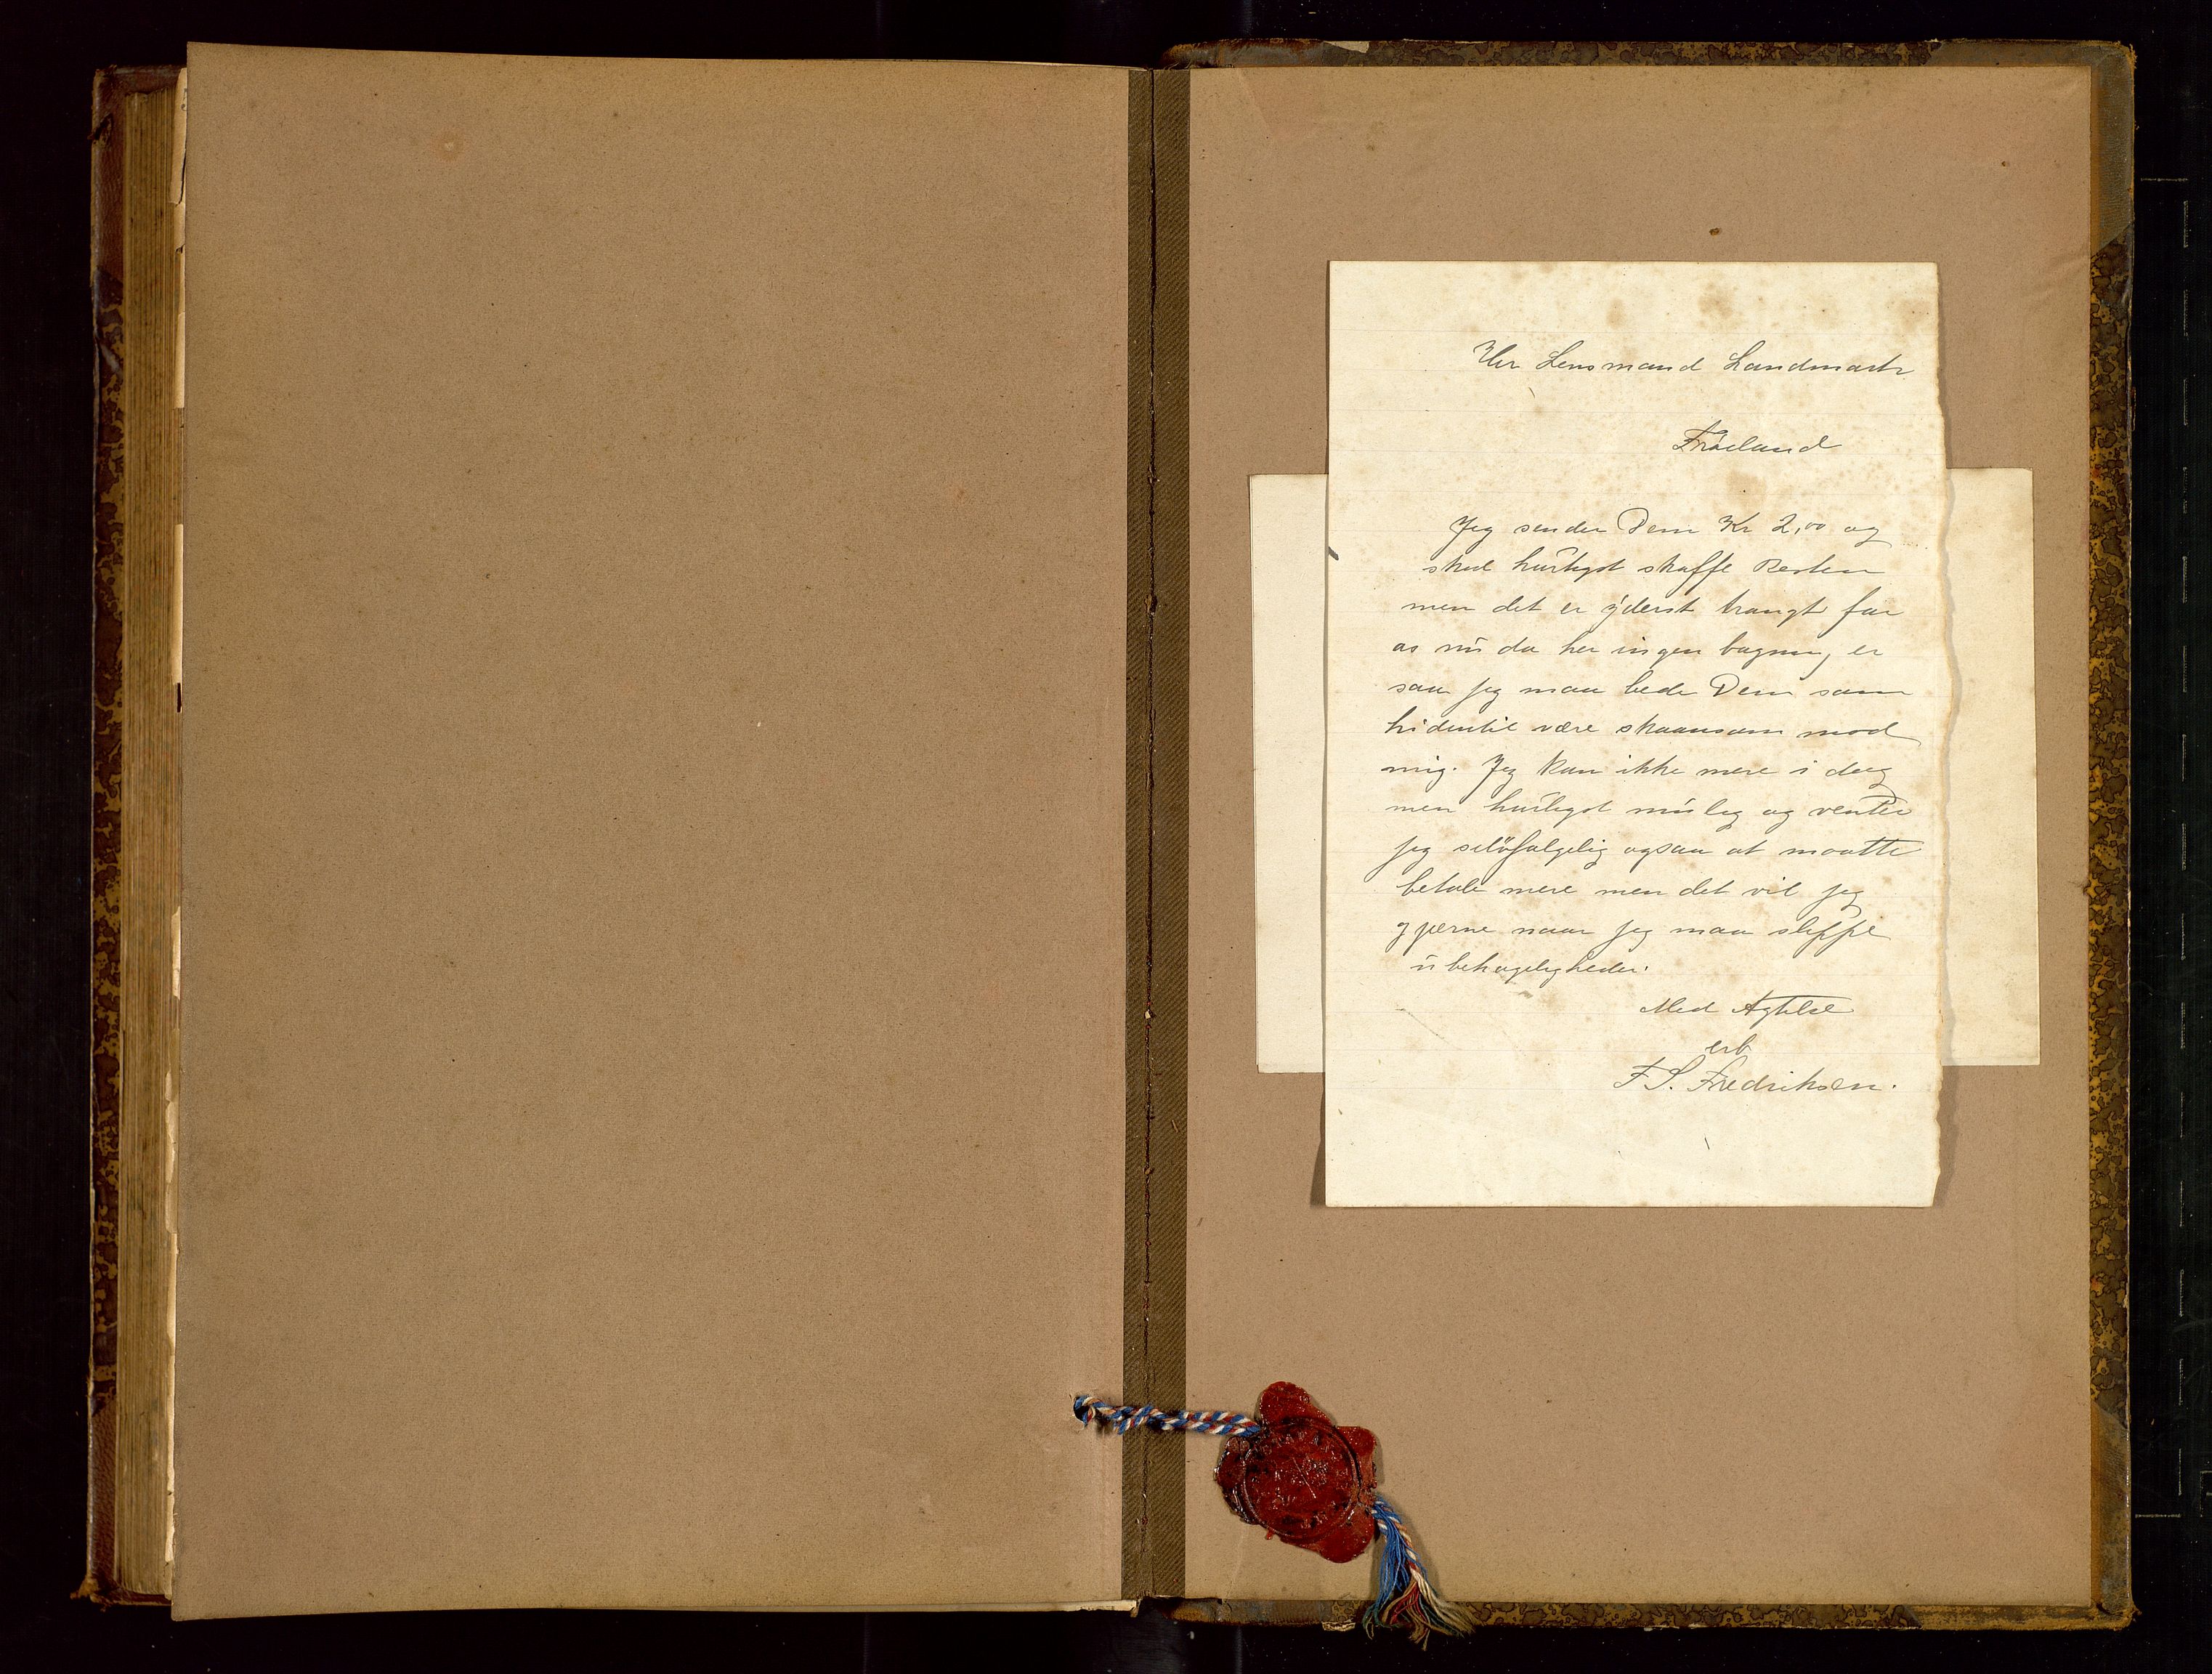 Hr Lensmand Landmark
Frøeland
Jeg sender Dem Kr 2,00 og
skal hurtigst skaffe Resten
men det er yderst trangt for
os nu da her ingen er
saa jeg maa bede Dem som
hidentil være skaansom mod
mig. Jeg kan ikke mere i dag
men hurtigst mulig og venter
jeg selvfølgelig ogsaa at maatte
betale mere men det vil jeg
gjerne naar jeg maa slippe
ubehageligheder.
Med Agtelse
erb
F S. Fredriksen.